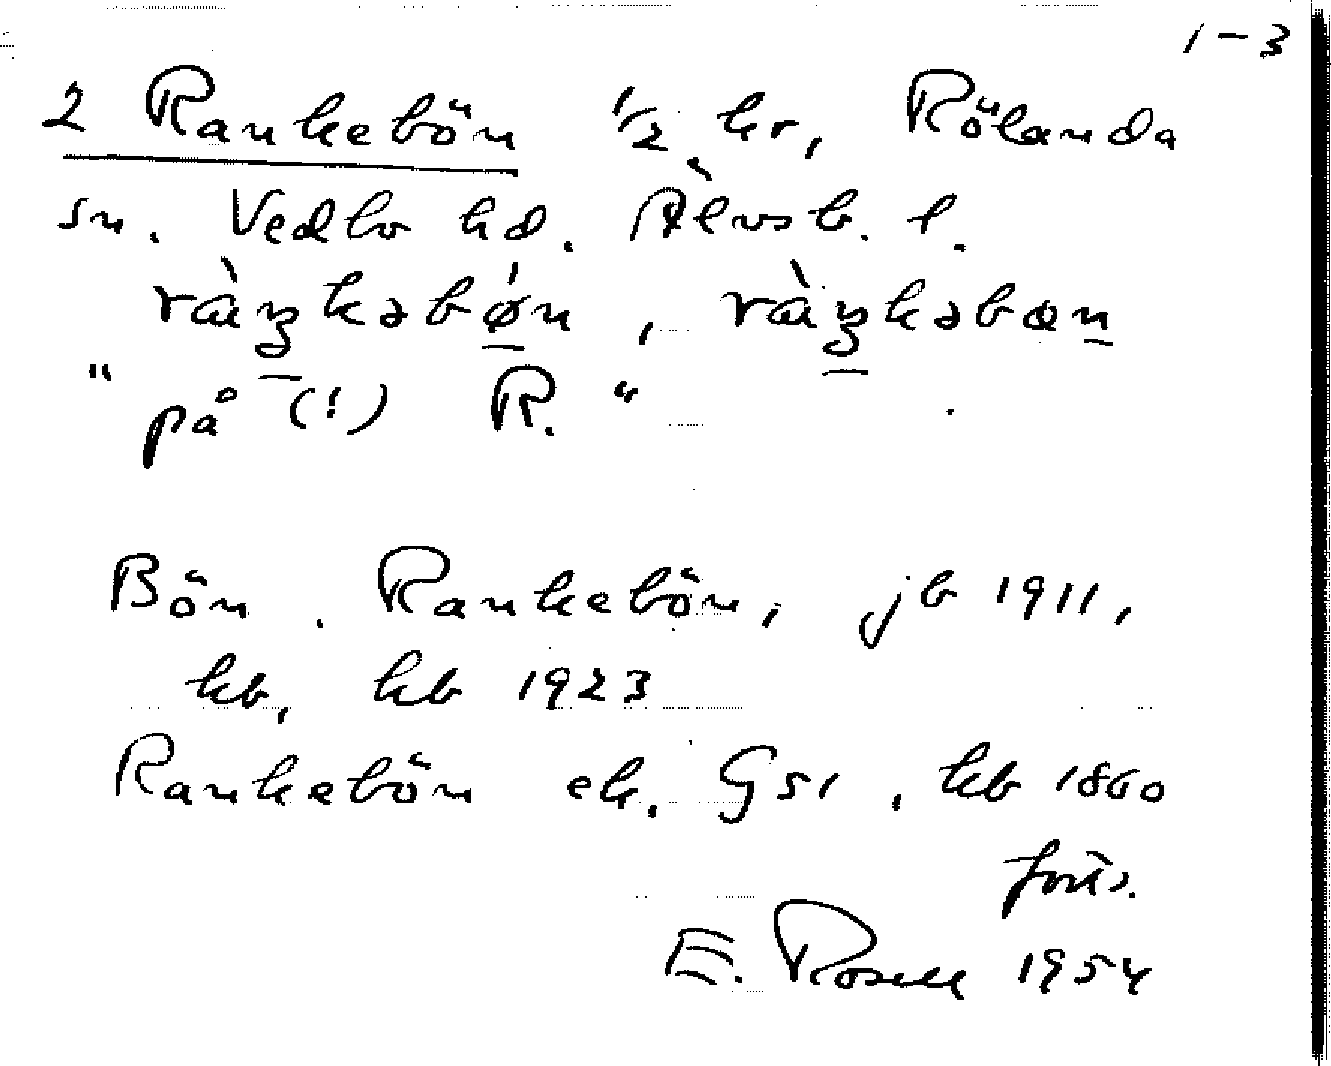 1-3
2 Rankebön 1/2 kr, Rölanda
sn. Vedbo hd. Älvsb. l.
"på (!) R."
Bön, Rankebön, jb 1911,
kb, kb 1923
Rankebön ek. G51, kb 1860
forts.
E. Rosell 1954